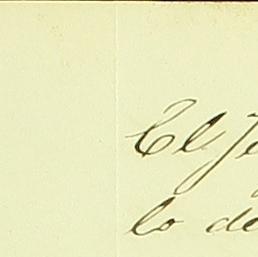 El Je
lo de